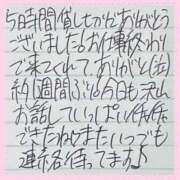 5時間貸しきりありがとう
ございました。お仕事終わり
で来てくれて、ありがと(泣)
約1週間ぶり今日も沢山
お話していっぱいイチャイチャ
できたねまたいつでも
連絡待ってます♪